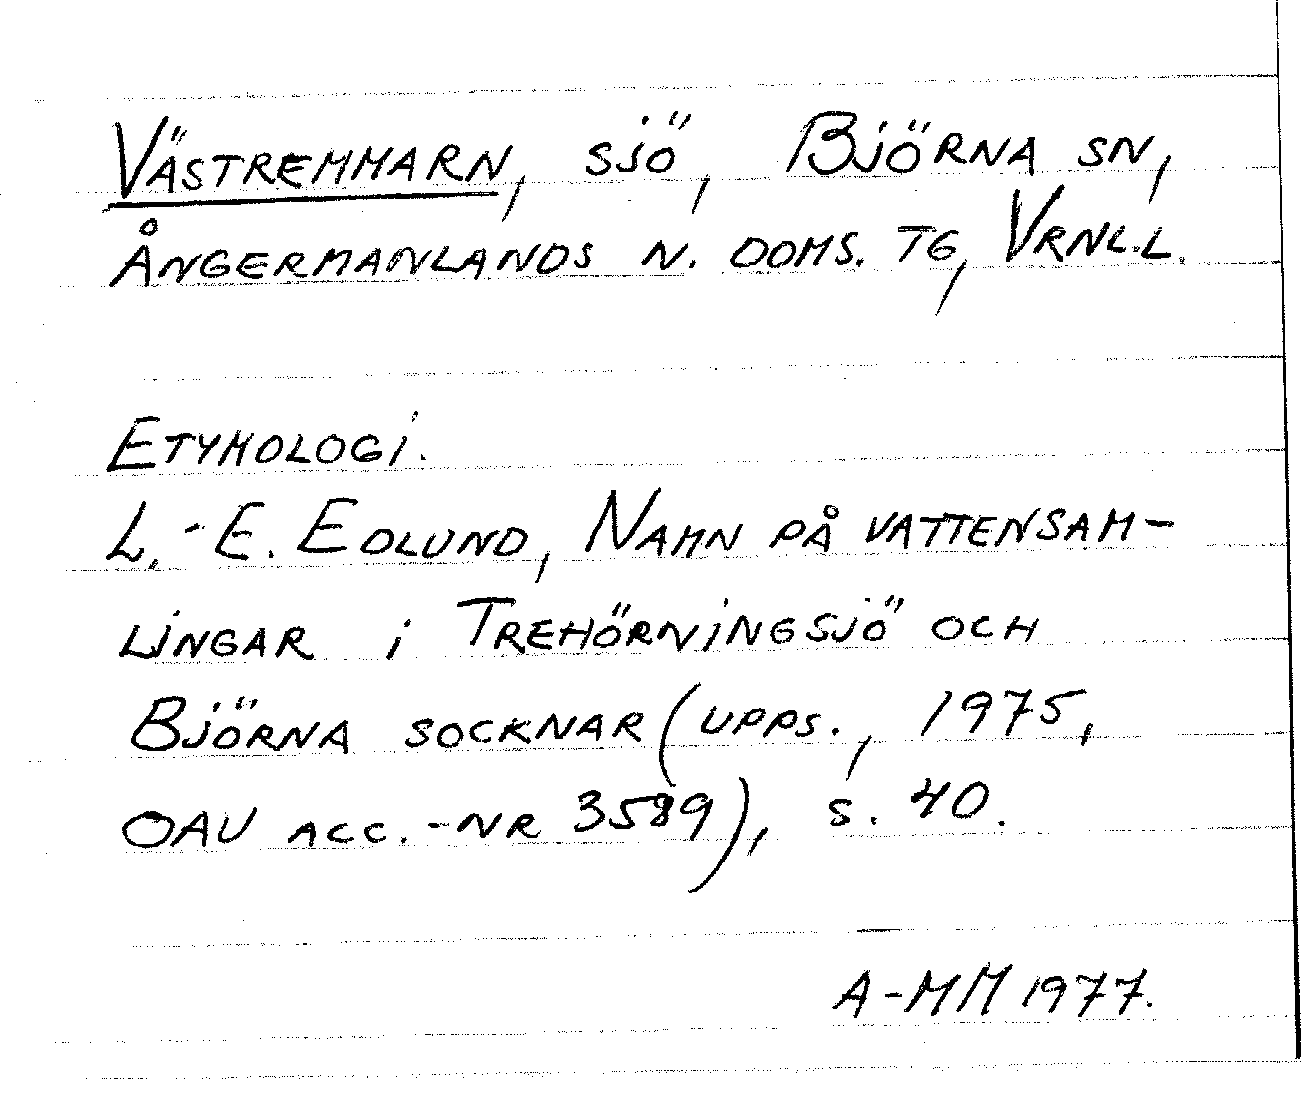 Västremmarn, sjö, Björna sn,
Ångermanlands n. doms. tg, Vrnl.l.
Etymologi.
L.-E. Edlund, Namn på vattensam-
lingar i Trehörningsjö och
Björna socknar (Upps., 1975,
OAU acc.-nr 3589), s. 40.
A-MM 1977.